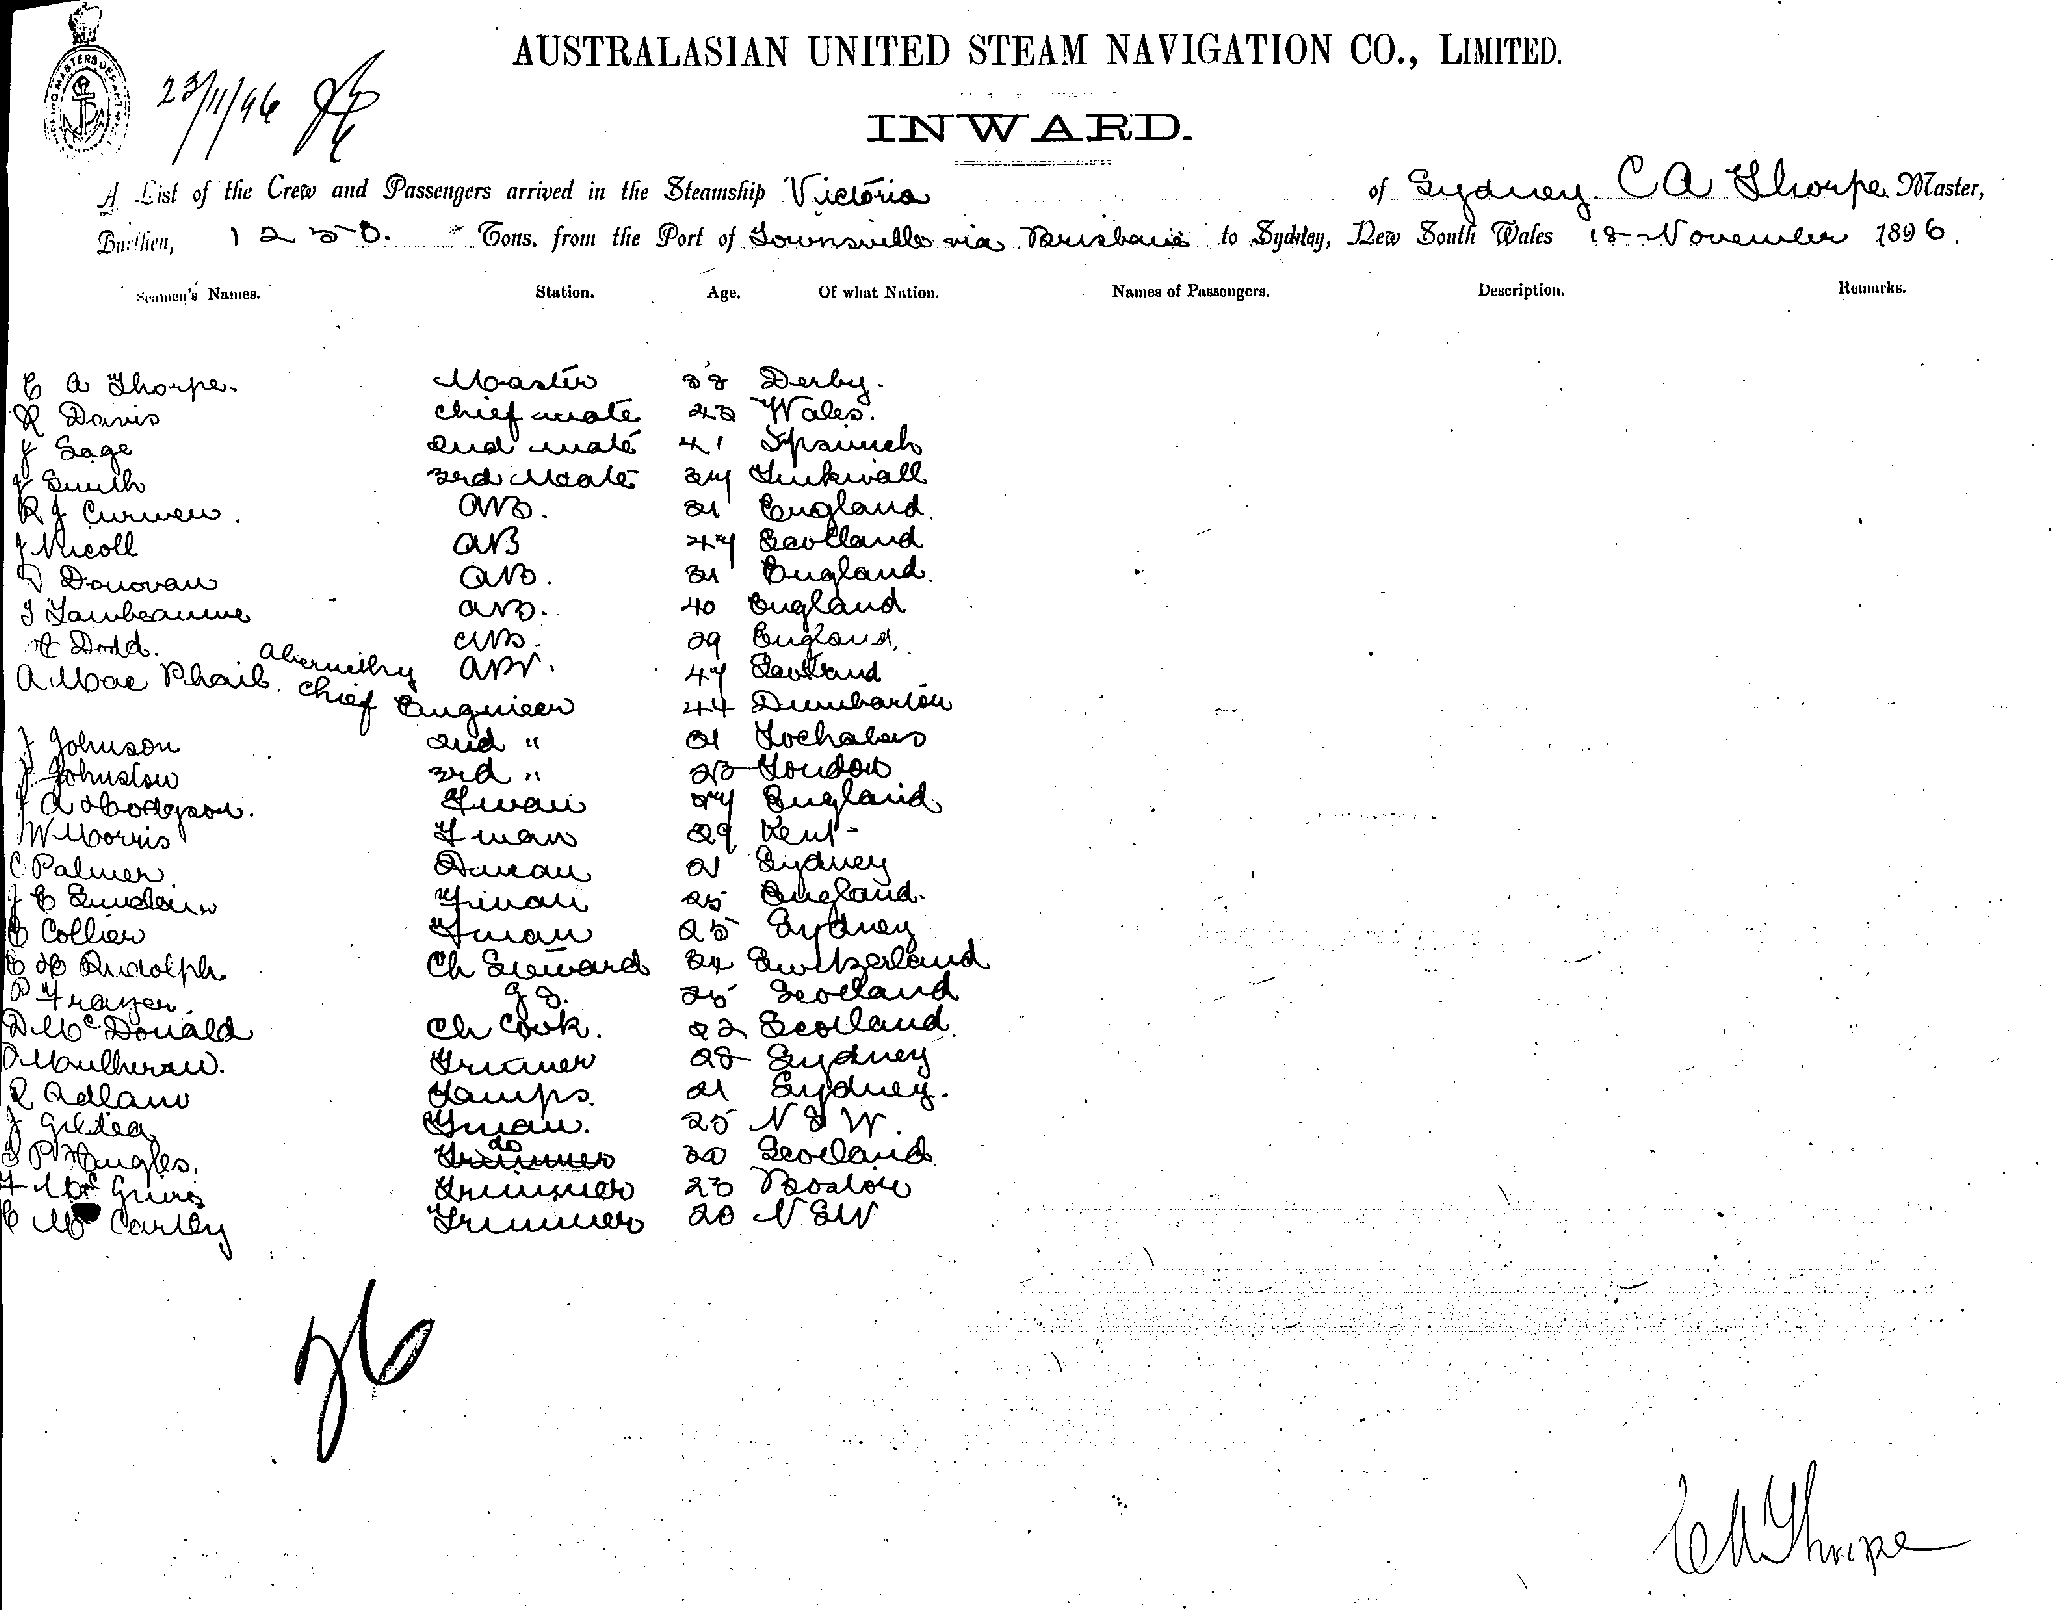 AUSTRALASIAN UNITED STEAM NAVIGATION CO., LIMITED.
23/11/96
INWARD.
A List of the Crew and Passengers arrived in the Steamship Victoria of Sydney. C A Thorpe Master,
Burthen, 1250. Tons, from the Port of Townsville via Brisbane to Sydney, New South Wales 18 November 1896.
Seamen's Names. Station. Age. Of what Nation. Names of Passengers. Description. Remarks.
C A Thorpe. Master 38 Derby.
R Davis chief mate Wales.
J Sage 2nd mate 41 Ipswich
J Smith 3rd Mate 24 Kirkwall
R J Curwen. AB. 21 England.
J Nicoll AB 44 Scotland
D Donovan AB. 31 England.
AB. 40 England
H Dodd. AB. 29 England.
A. Mac Phail. Abernethy AB. 47 Scotland
chief Engineer 44 Dumbarton
J Johnson 2nd " 31
J Johnston 3rd " London
J A Hodgson. Fman 24 England
W Morris Fman 29 Kent
C Palmer. Dman 21 Sydney
J C Fman 25 England.
C Collier Fman 25 Sydney
C H Rudolph Ch Steward 34 Switzerland
P Frazer. G S. 25 Scotland
D McDonald Ch Cook. 22 Scotland.
Mulheran. Trimer 28 Sydney
R Adland Lamps. 21 Sydney.
J Gildea Fman. 25 N S W.
do Trimmer 20 Scotland
F Trimmer 23 Boston
C McCarley Trimmer 20 N S W
26
C A Thorpe